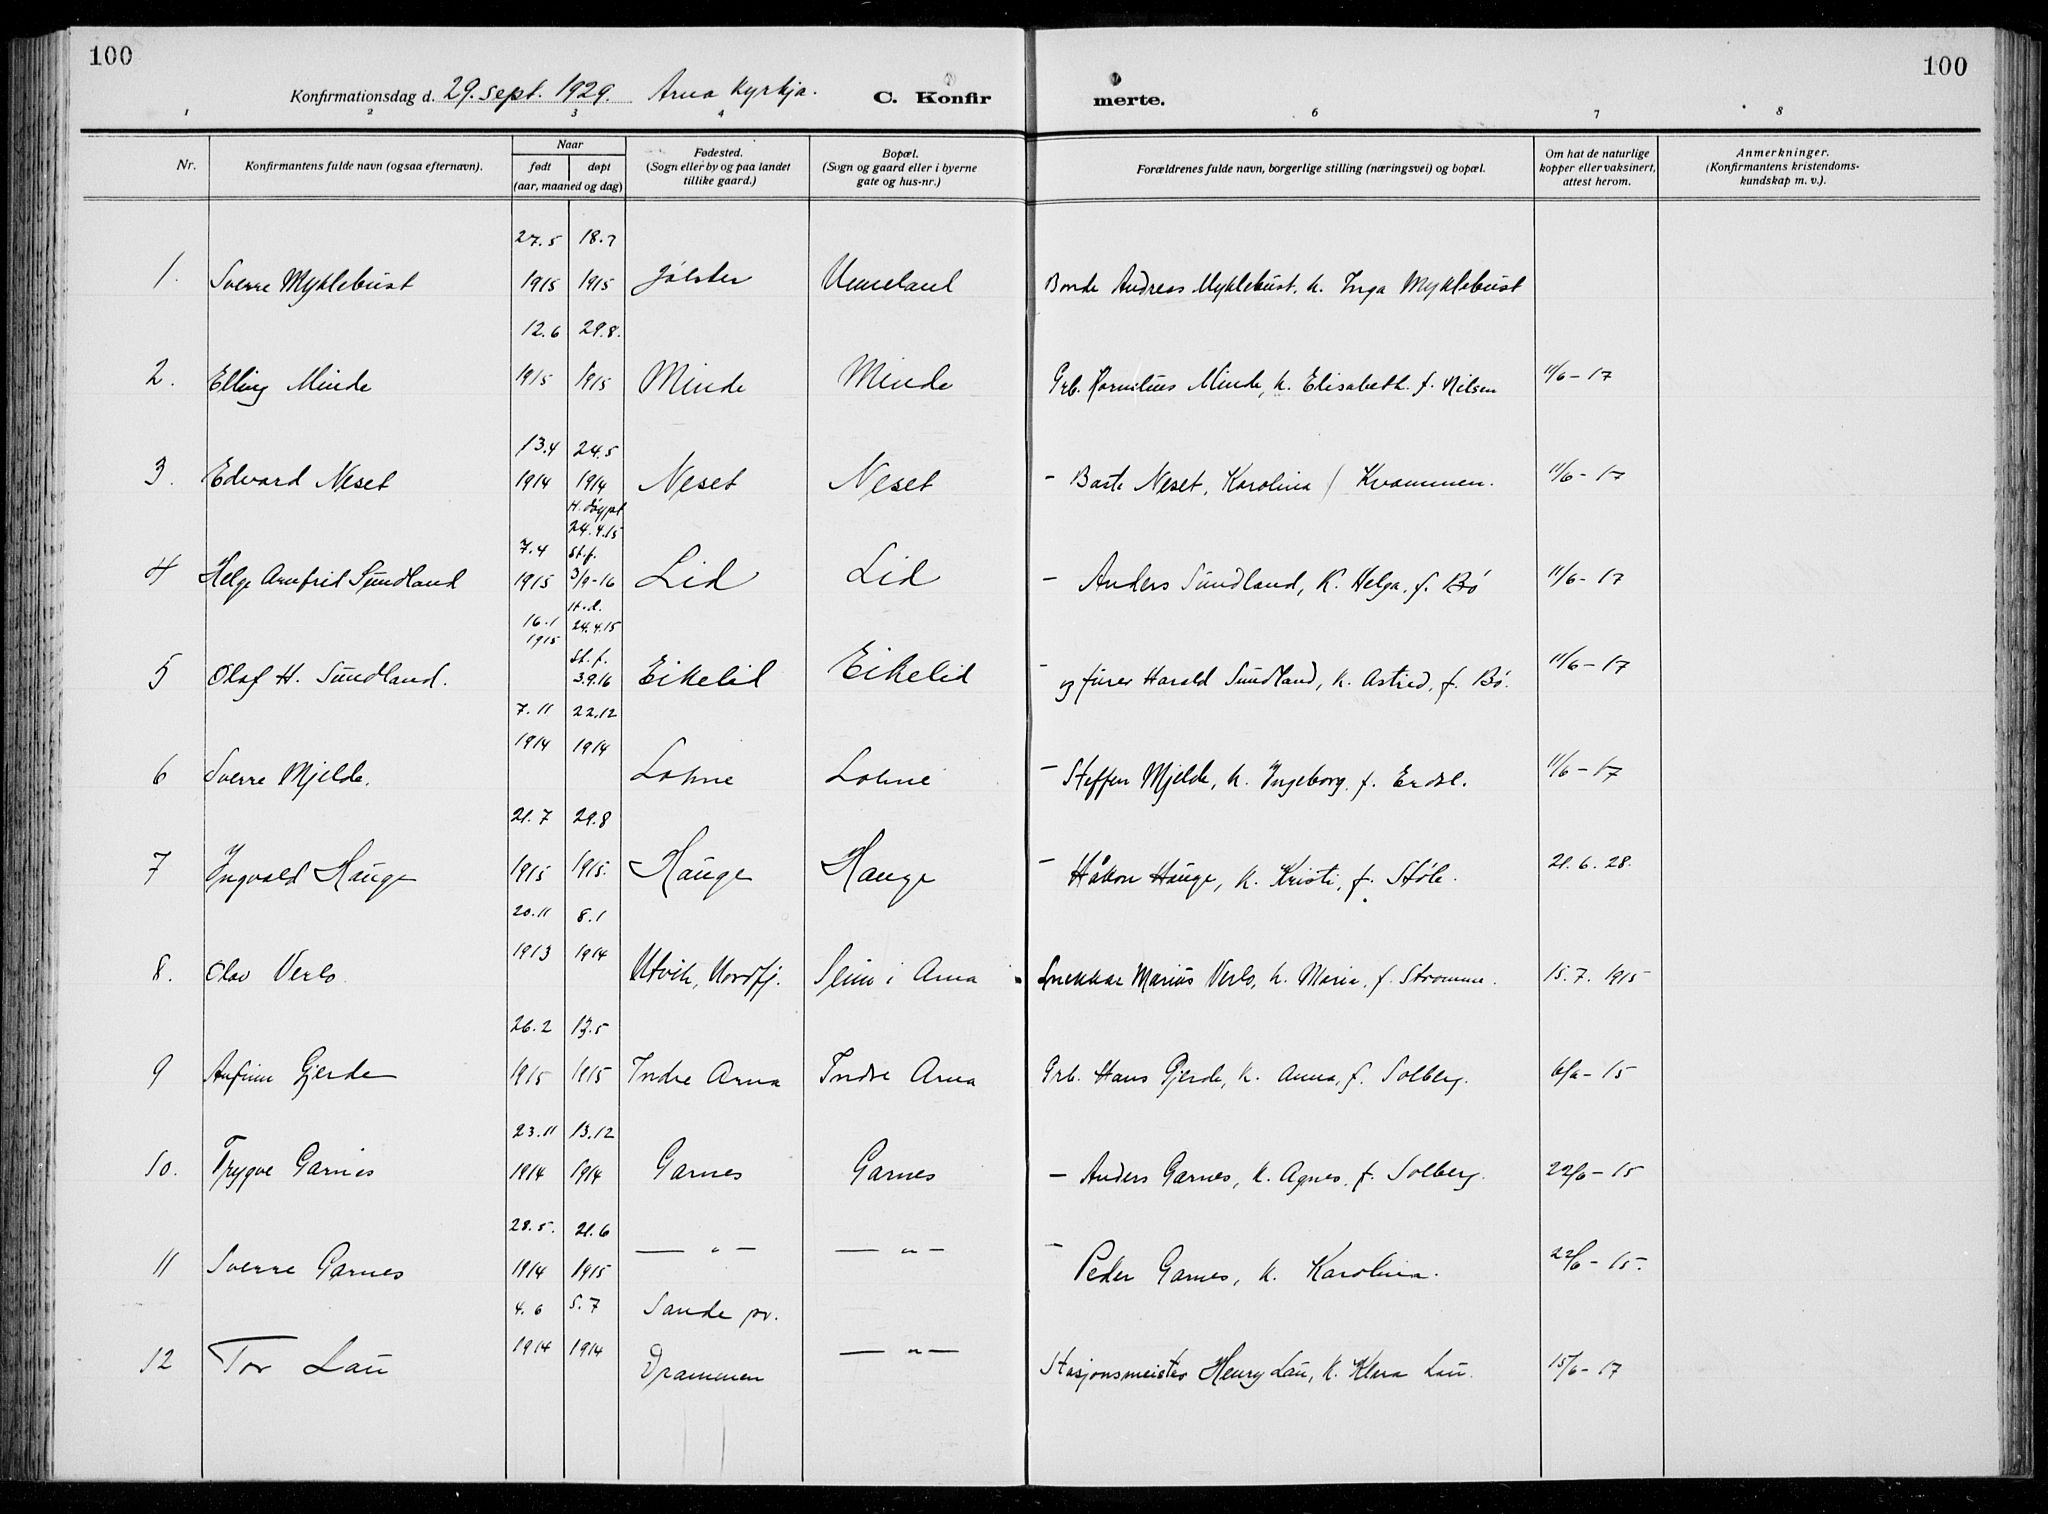 100
100
Konfirmationsdag d. 29. sept. 1929. Arna Kyrkja. C. Konfir merte.
1 2 3 4 6 7 8
Nr.
Konfirmantens fulde navn (ogsaa efternavn).
Naar
født
døpt
(aar, maaned og dag)
Fødested.
(Sogn eller by og paa landet
tillike gaard.)
Bopæl.
(Sogn og gaard eller i byerne
gate og hus-nr.)
Forældrenes fulde navn, borgerlige stilling (næringsvei) og bopæl.
Om hat de naturlige
kopper eller vaksinert,
attest herom.
Anmerkninger.
(Konfirmantens kristendoms-
kundskap m. v.).
27.5 18.7
1. Sverre Myklebust 1915 1915 Jølster Unneland Bonde Andreas Myklebust. k. Inga Myklebust
12.6 29.8.
2. Elling Minde 1915 1915 Minde Minde Grb. Kornilius Minde, k. Elisabeth. f. Nilsen 11/6-17
13.4 24.5
3. Edvard Neset 1914 1914 Neset Neset - Baste Neset, Karolina f Kvammen. 11/6-17
H. døypt
24.4.15
7.4 St.f.
4 Helge Arnfrid Sundland 1915 3/9-16 Lid Lid - Anders Sundland, K. Helga. f. Bø 11/6-17
H.d.
16.1 24.4.15
1915
St.f.
5 Olaf H. Sundland. 3.9.16 Eikelid Eikelid - og furer Harald Sundland, k. Astrid, f. Bø. 11/6-17
7.11 22.12
1914 1914
6 Sverre Mjelde. Lohne Lohne - Steffen Mjelde, k. Ingeborg f. Erdal. 11/6-17
21.7 29.8
7 Yngvald Hauge 1915 1915. Hauge Hauge - Håkon Hauge, k. Kristi, f. Støle. 21.6.28.
20.11 8.1
1913 1914
8. Olav Verlo Utvik, Nordfj. Seim i Arna Snekkar Marius Verlo, k. Maria. f. Strømme. 15.7.1915
26.2 13.5
9 Anfinn Gjerde 1915 1915 Indre Arna Indre Arna Grb. Hans Gjerde, k. Anna, f. Solberg. 6/6-15
23.11 13.12
10. Trygve Garnes 1914 1914 Garnes Garnes - Anders Garnes, k. Agnes. f. Solberg. 22/6-15
28.5. 21.6 — " — — " —
11 Sverre Garnes 1914 1915 - Peder Garnes, k. Karolina. 22/6-15.
4.6 5.7 Sande pr.
12 Tor Lau 1914 1914 Drammen — " — Stasjonsmeister Henry Lau, k. Klara Lau. 15/6-17